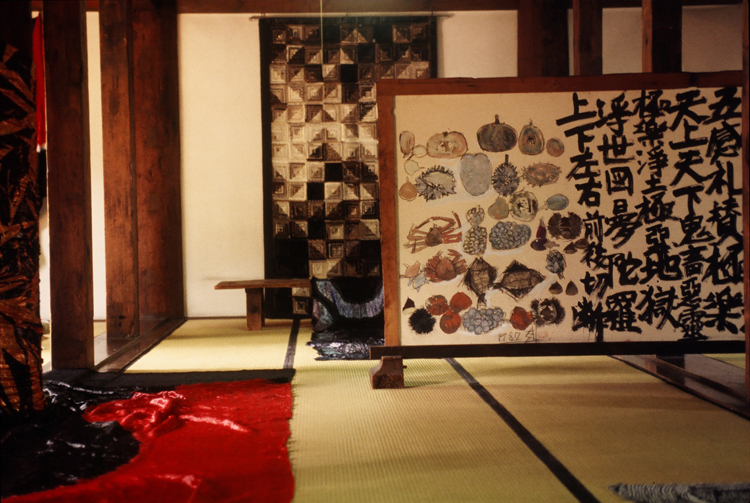 五感礼賛極楽
天上天下鬼畜惡霊
極楽浄土極惡地獄
浮世曼陀羅
上下左右前後切断